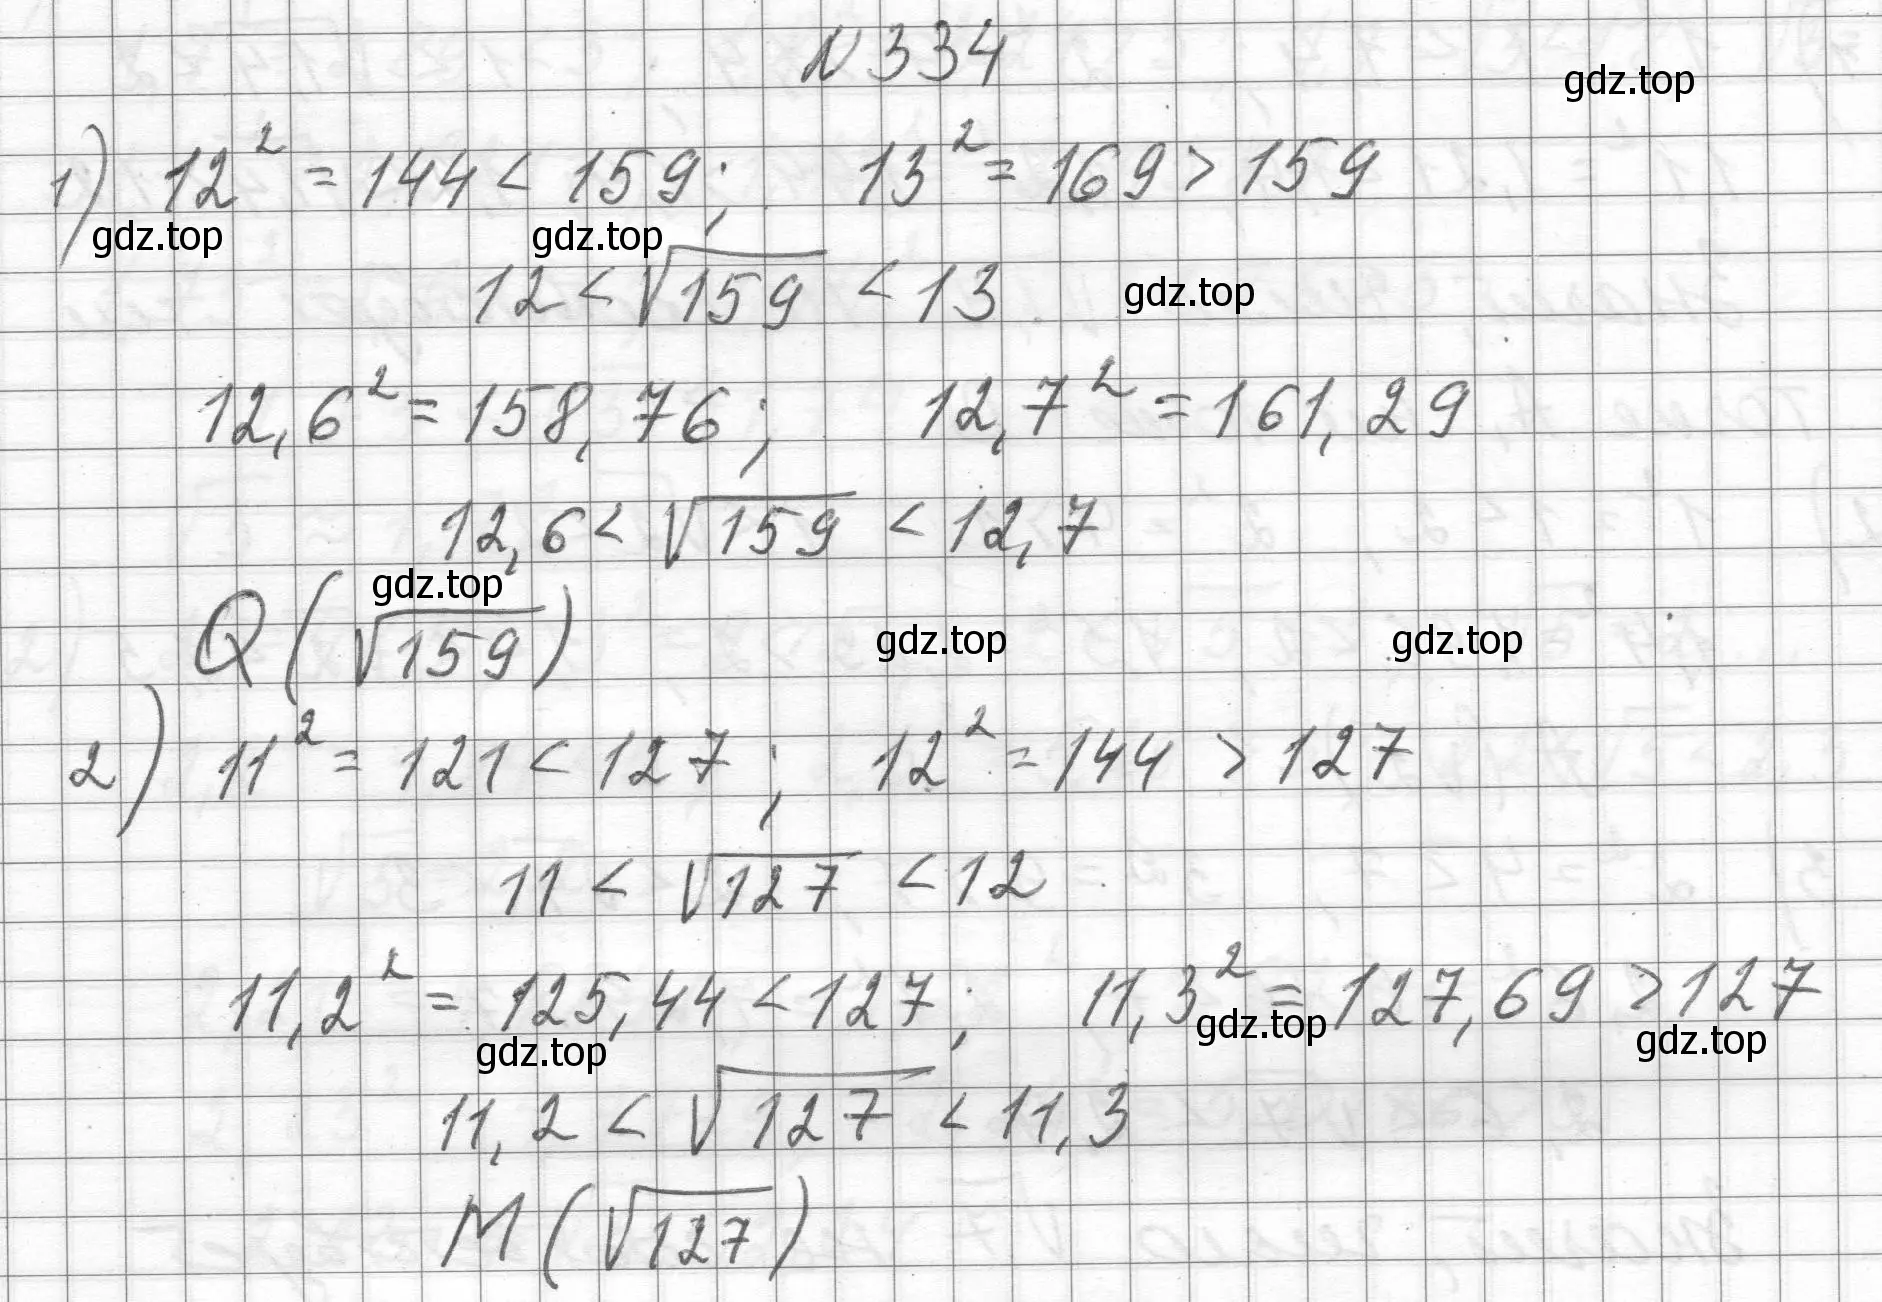 N 334
gdz.top
1) 12² = 144 < 159; 13² = 169 > 159
gdz.top gdz.top
12 < √159 < 13
gdz.top
12,6² = 158,76; 12,7² = 161,29
12,6 < √159 < 12,7
gdz.top
Q (√159)
gdz.top gdz.top
2) 11² = 121 < 127; 12² = 144 > 127
11 < √127 < 12
11,2² = 125,44 < 127; 11,3² = 127,69 > 127
gdz.top gdz.top gdz.top
11,2 < √127 < 11,3
M (√127)